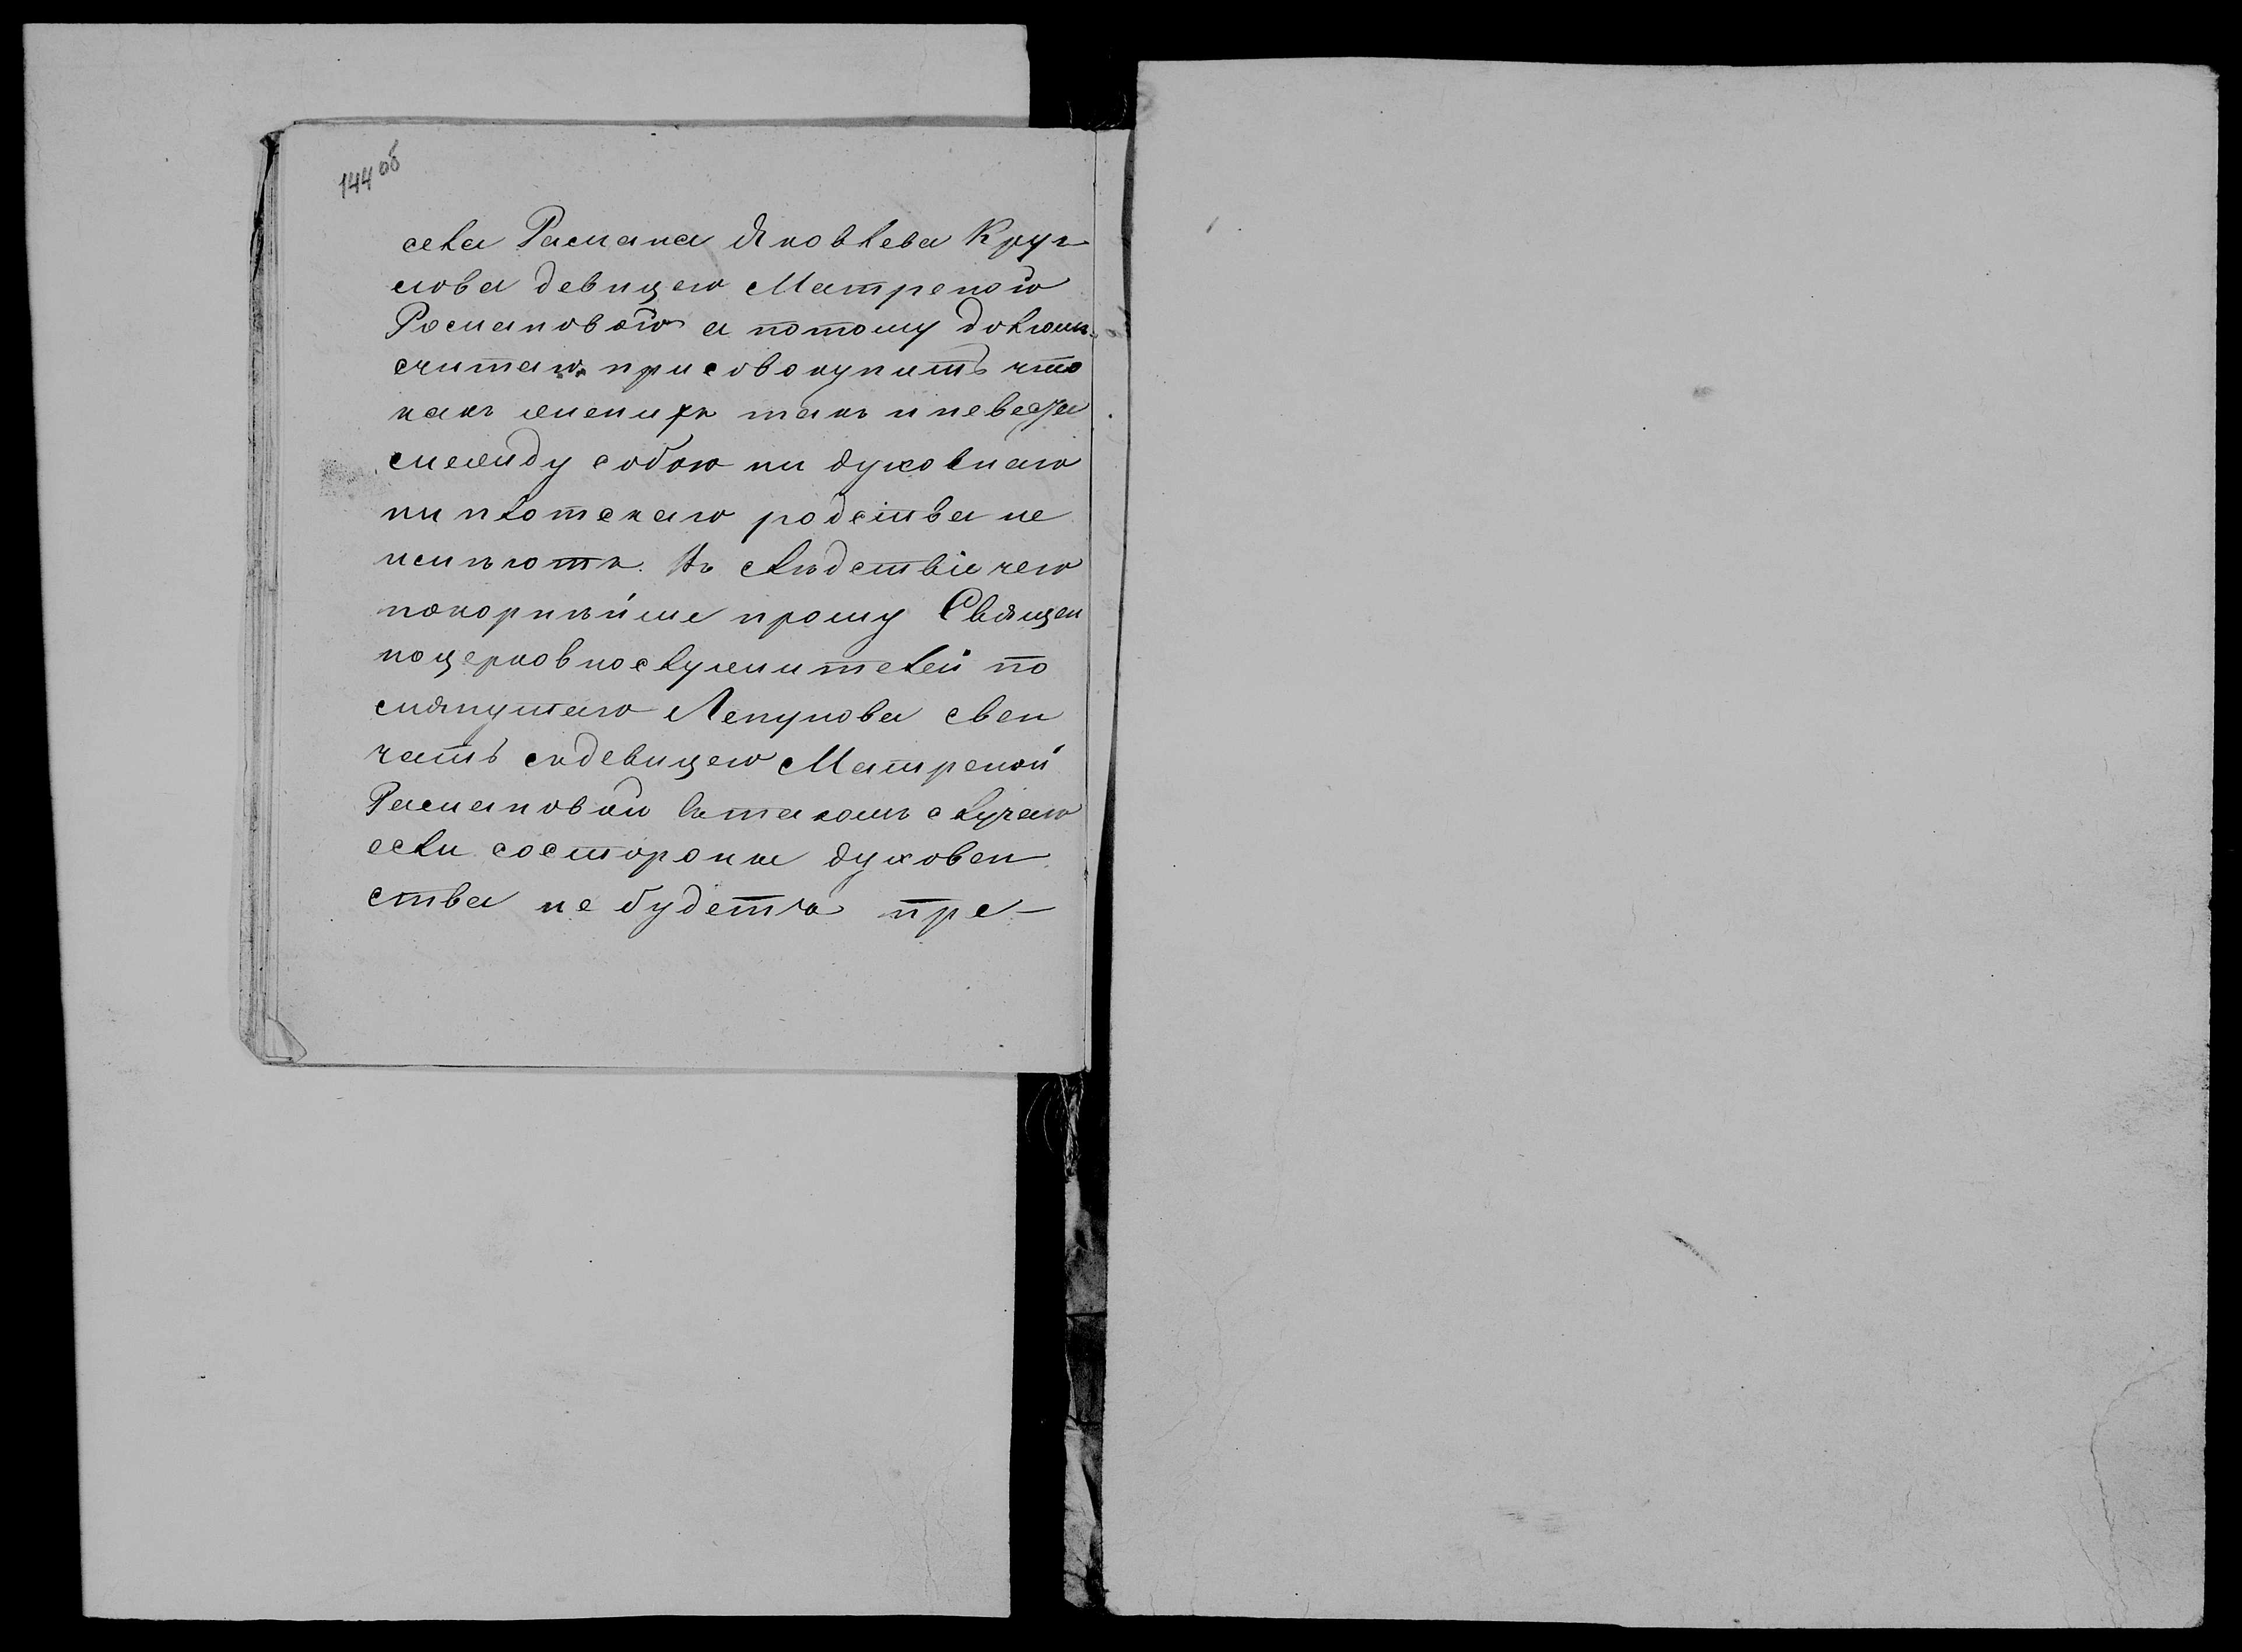 144 об
села Рамана Яковлева Круг
лова девицею Матреною
Романовою а потому долгомъ
считаю присовокупить что
какъ женихъ такъ и невеста
смежду собою ни духовнаго
ни плотскаго родства не
имѣютъ. Въ слѣдствiи чего
покорнѣйше прошу Священ
ноцерковнослужителей по
мянутаго Лепунова свен
чать съдевицею Матреной
Рамановой втакомъ случаю
если состороны духовен
ства не будетъ пре-